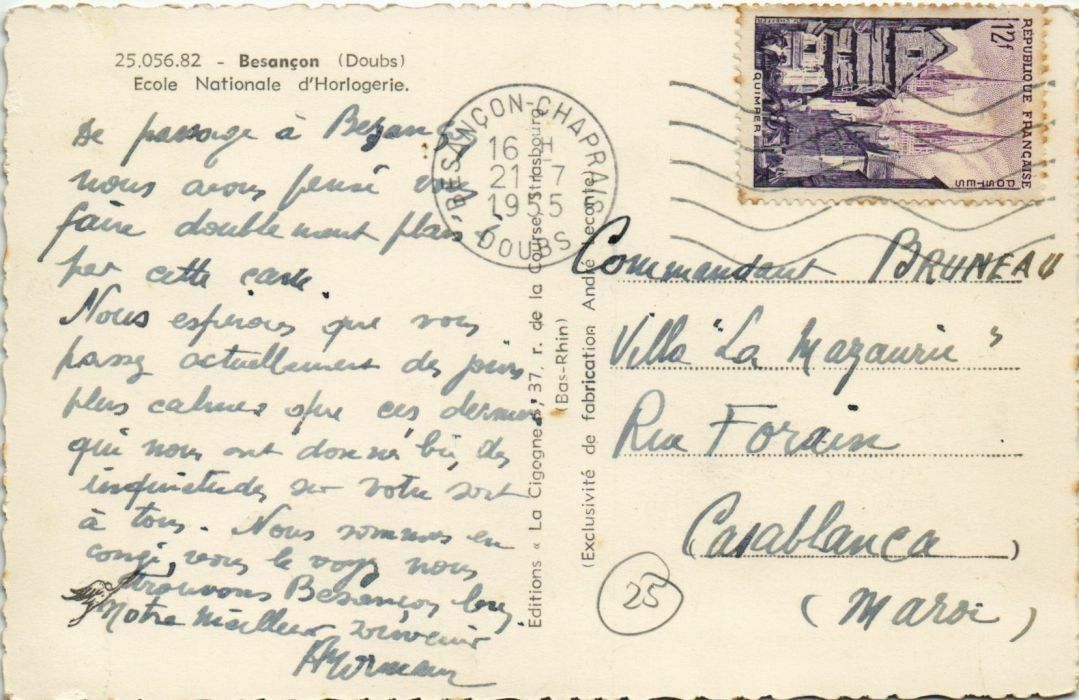 25.056.82 - Besançon (Doubs)
Ecole Nationale d'Horlogerie.
De passage à Besançon
nous avons pensé vous
faire doublement plaisir
par cette carte.
Nous espérons que vous
passez actuellement des jours
plus calmes que ces derniers
qui nous ont donné bien des
inquiétudes sur votre sort
à tous. Nous sommes en
congé, vous le voyez nous
trouvons Besançon
Notre meilleur souvenir
BESANÇON-CHAPRAIS
16 H
21-7
1955
DOUBS
REPUBLIQUE FRANÇAISE
12f
POSTES
QUIMPER
Editions « La Cigogne », 37, r. de la Course, Strasbourg
(Bas-Rhin)
(Exclusivité de fabrication André Leconte)
Commandant BRUNEAU
Villa "La Mazaurie"
Rue Forain
Casablanca)
(Maroc)
25